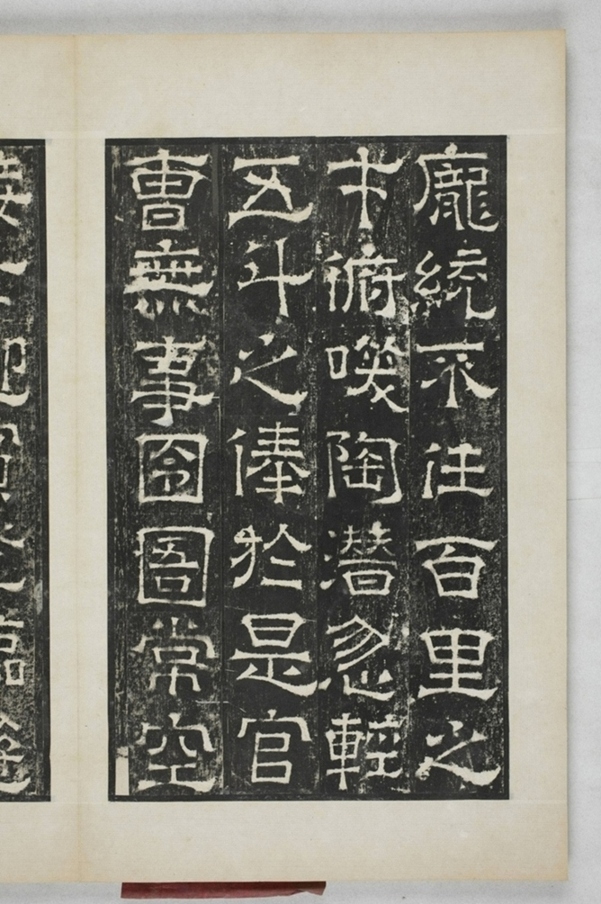 龐統不任百里之
才俯嘆陶潛忽輕
五斗之俸於是官
曹無事囹圄常空